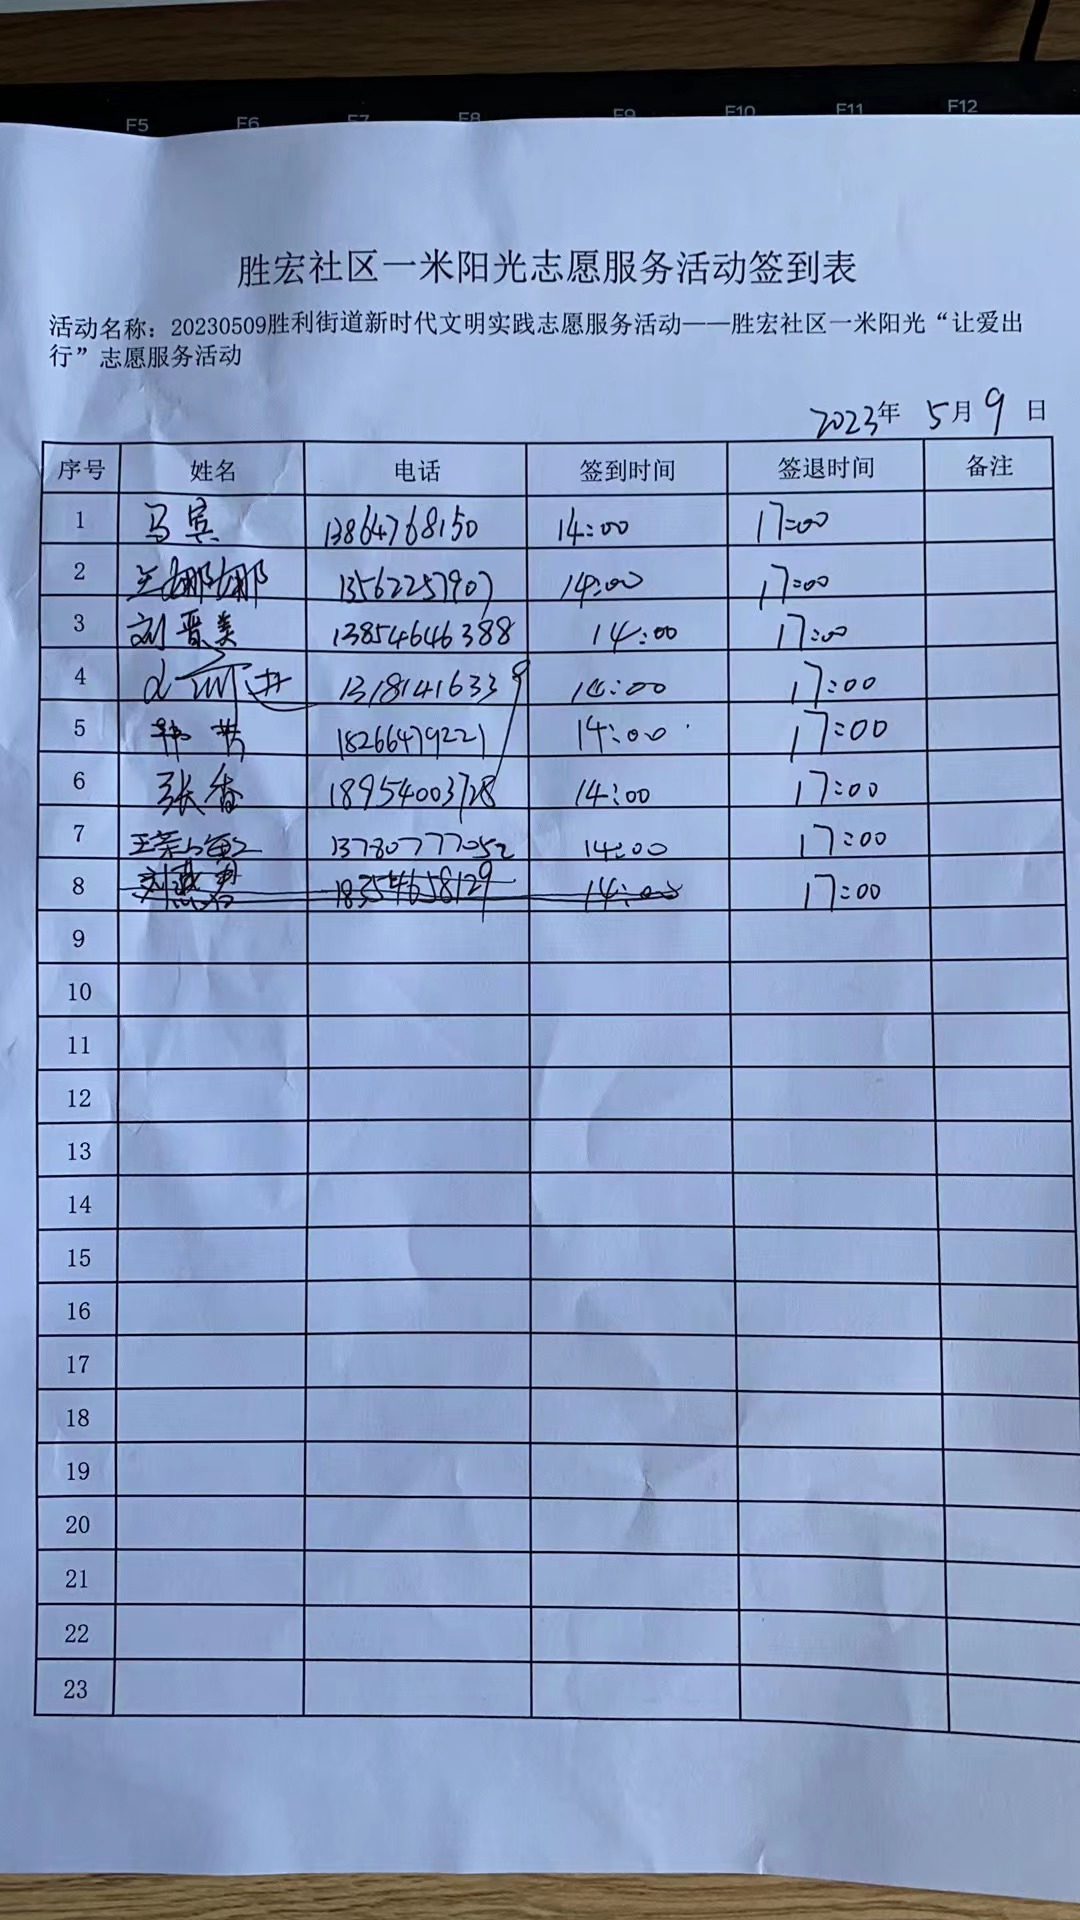 F5 F6 F7 F8 F9 F10 F11 F12
胜宏社区一米阳光志愿服务活动签到表
活动名称：20230509胜利街道新时代文明实践志愿服务活动——胜宏社区一米阳光“让爱出
行”志愿服务活动
2023年 5月9日
序号 姓名 电话 签到时间 签退时间 备注
1 马宾 13864768150 14:00 17:00
2 王娜娜 13562257907 14:00 17:00
3 刘晋美 13854646388 14:00 17:00
4 13181416339 14:00 17:00
5 韩英 18266479221 14:00 17:00
6 张香 18954003728 14:00 17:00
7 13780777052 14:00 17:00
8 18354658129 14:00 17:00
9
10
11
12
13
14
15
16
17
18
19
20
21
22
23